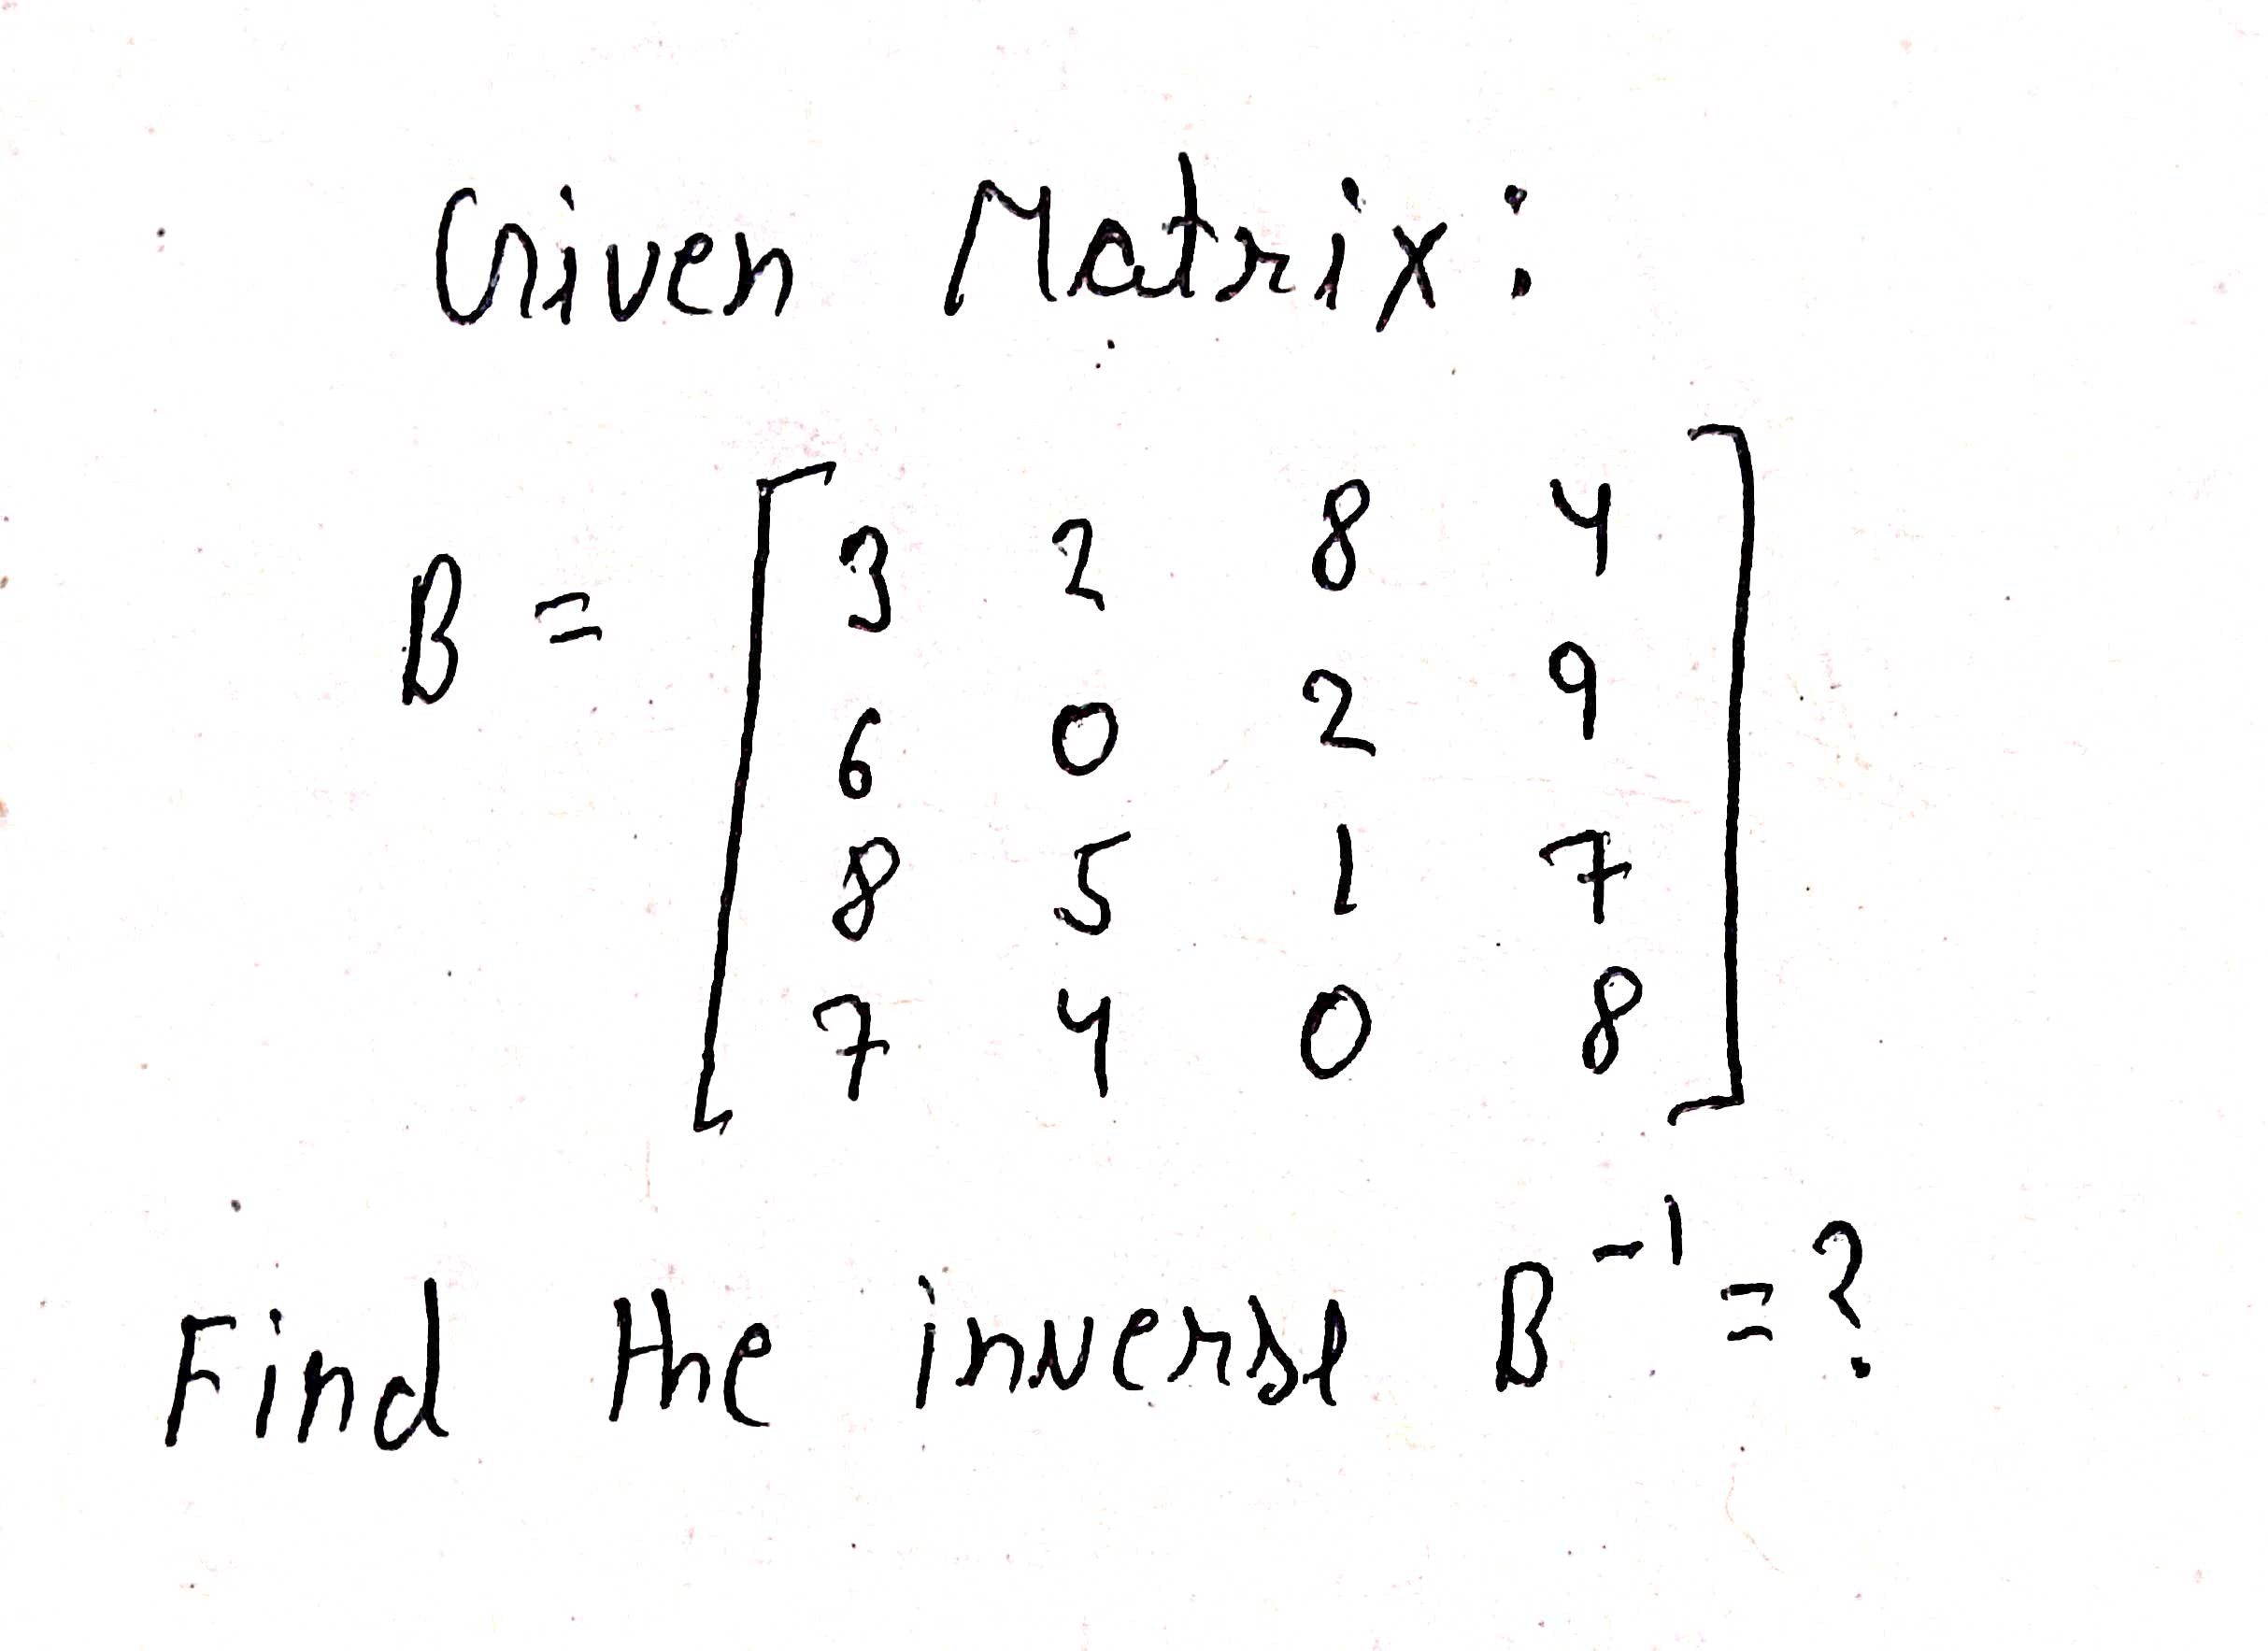 Given Matrix:
B = [ 3 2 8 4
6 0 2 9
8 5 1 7
7 4 0 8 ]
Find the inverse B⁻¹ = ?